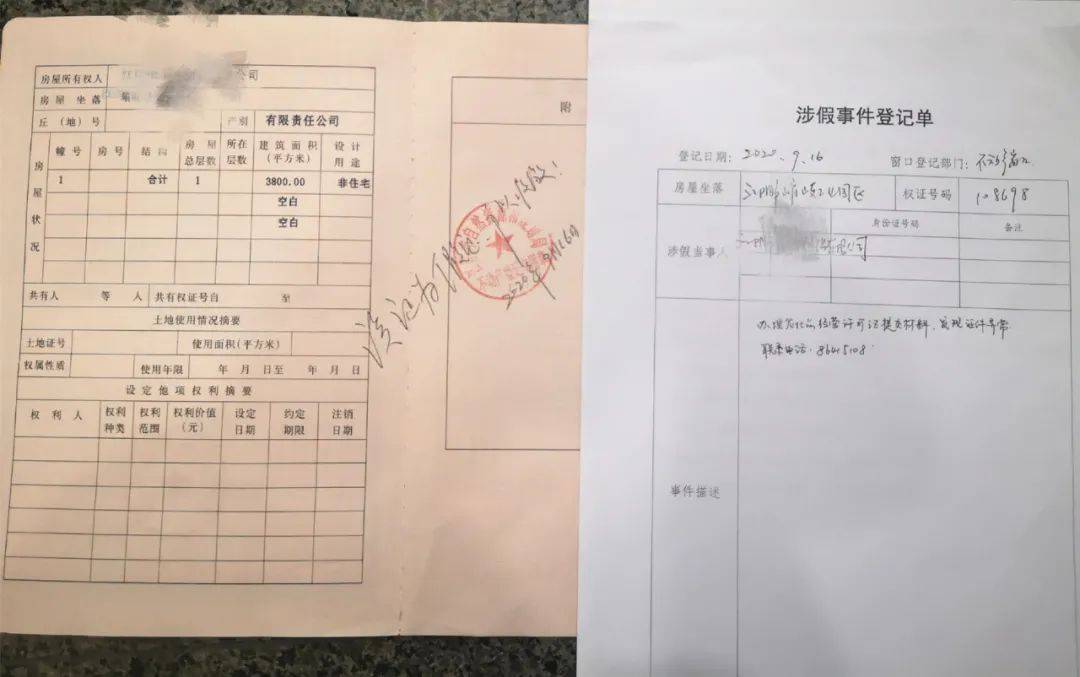 房屋所有权人 公司
房屋坐落
丘（地）号 产别 有限责任公司
房屋状况
幢号 房号 结构 房屋总层数 所在层数 建筑面积（平方米） 设计用途
1 合计 1 3800.00 非住宅
空白
空白
共有人 等 人 共有权证号自 至
土地使用情况摘要
土地证号 使用面积(平方米)
权属性质 使用年限 年 月 日至 年 月 日
设定他项权利摘要
权利人 权利种类 权利范围 权利价值（元） 设定日期 约定期限 注销日期
附
该证为
2020年9月16日
涉假事件登记单
登记日期: 2020.9.16 窗口登记部门:
房屋坐落 权证号码 108698
涉假当事人 身份证号码 备注
公司
事件描述
办理危化品经营许可证提交材料,发现证件异常
联系电话:86415108